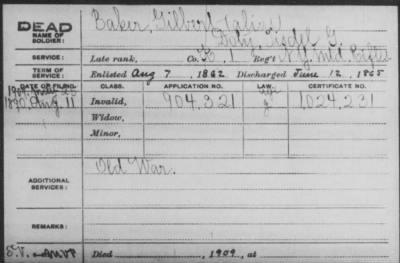 DEAD
NAME OF SOLDIER: Baker, Gilbert (alias)
Doty, G.
SERVICE: Late rank, Co. Reg't N.Y.
TERM OF SERVICE: Enlisted Aug 7, 1862 Discharged June 12, 1865
DATE OF FILING. CLASS. APPLICATION NO. LAW. CERTIFICATE NO.
1890, Aug 11 Invalid, 904,321 1,024,231
Widow,
Minor,
ADDITIONAL SERVICES: Old War.
REMARKS:
Died 1909, at